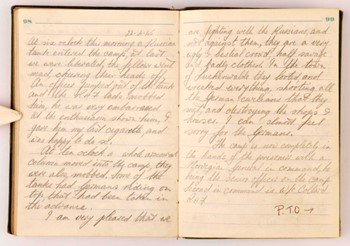 98
22-4-45
At six oclock this morning a Russian
tank entered the camp, at last
we were liberated, the fellows went
mad, their heads off.
An officer jumped out of the tank
and mobbed
him, he was very embarrassed
at the enthusiasm shown him, I
gave him my last cigarette, and
was happy to do so.
At ten oclock a whole armoured
column moved into the camp, they
were also mobbed. Some of the
tanks had Germans riding on
top, that had been taken in
the advance.
I am very pleased that we
98
are fighting with the Russians and
not against them, they are a very
crowd, half savage
and badly clothed. In the town
of Luckenwalde they looted and
wrecked everything, shooting all
the German civilians that they
met and destroying the shops &
houses, I can almost feel
sorry for the Germans.
The camp is now completely in
the hands of the prisoners with a
Norwegian General in command, he
being the senior officer in the camp
Second in command is Collard
R.A.F
P.T.O →